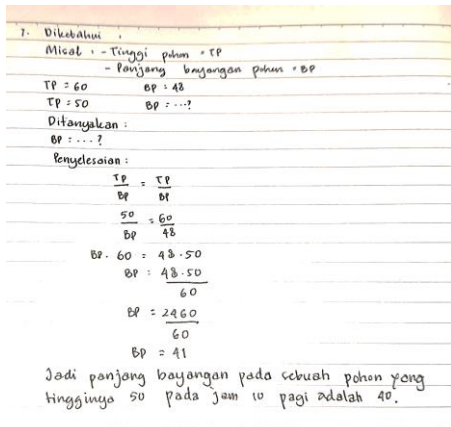 7. Diketahui :
Misal : - Tinggi pohon = TP
- Panjang bayangan pohon = BP
TP = 60 BP = 48
TP = 50 BP = ...?
Ditanyakan :
BP = ... ?
Penyelesaian :
TP/BP = TP/BP
50/BP = 60/48
BP . 60 = 48 . 50
BP = 48 . 50 / 60
BP = 2460 / 60
BP = 41
Jadi panjang bayangan pada sebuah pohon yang
tingginya 50 pada jam 10 pagi adalah 40.